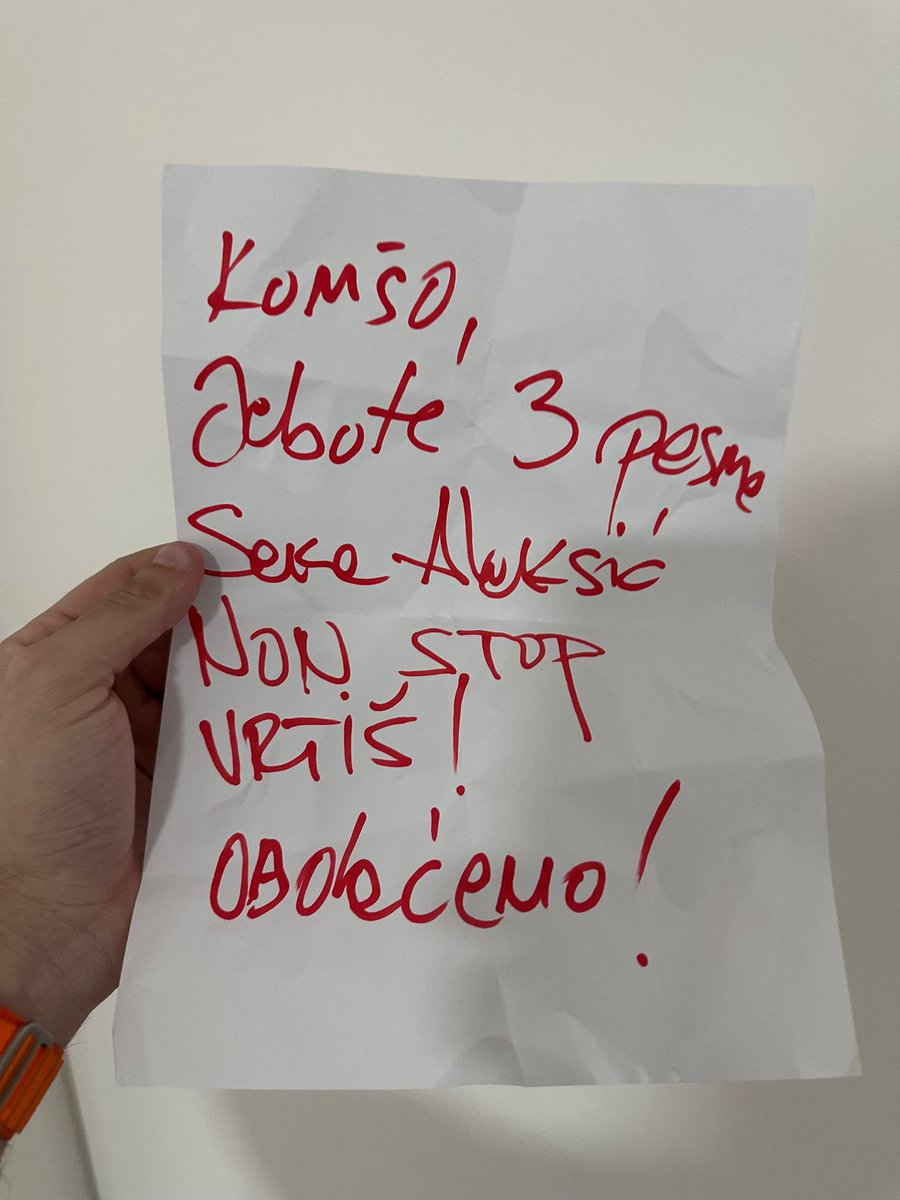 KOMŠO,
Jebote 3 pesme
Seke Aleksić
NON STOP
VRTIŠ!
OBOlećemo!